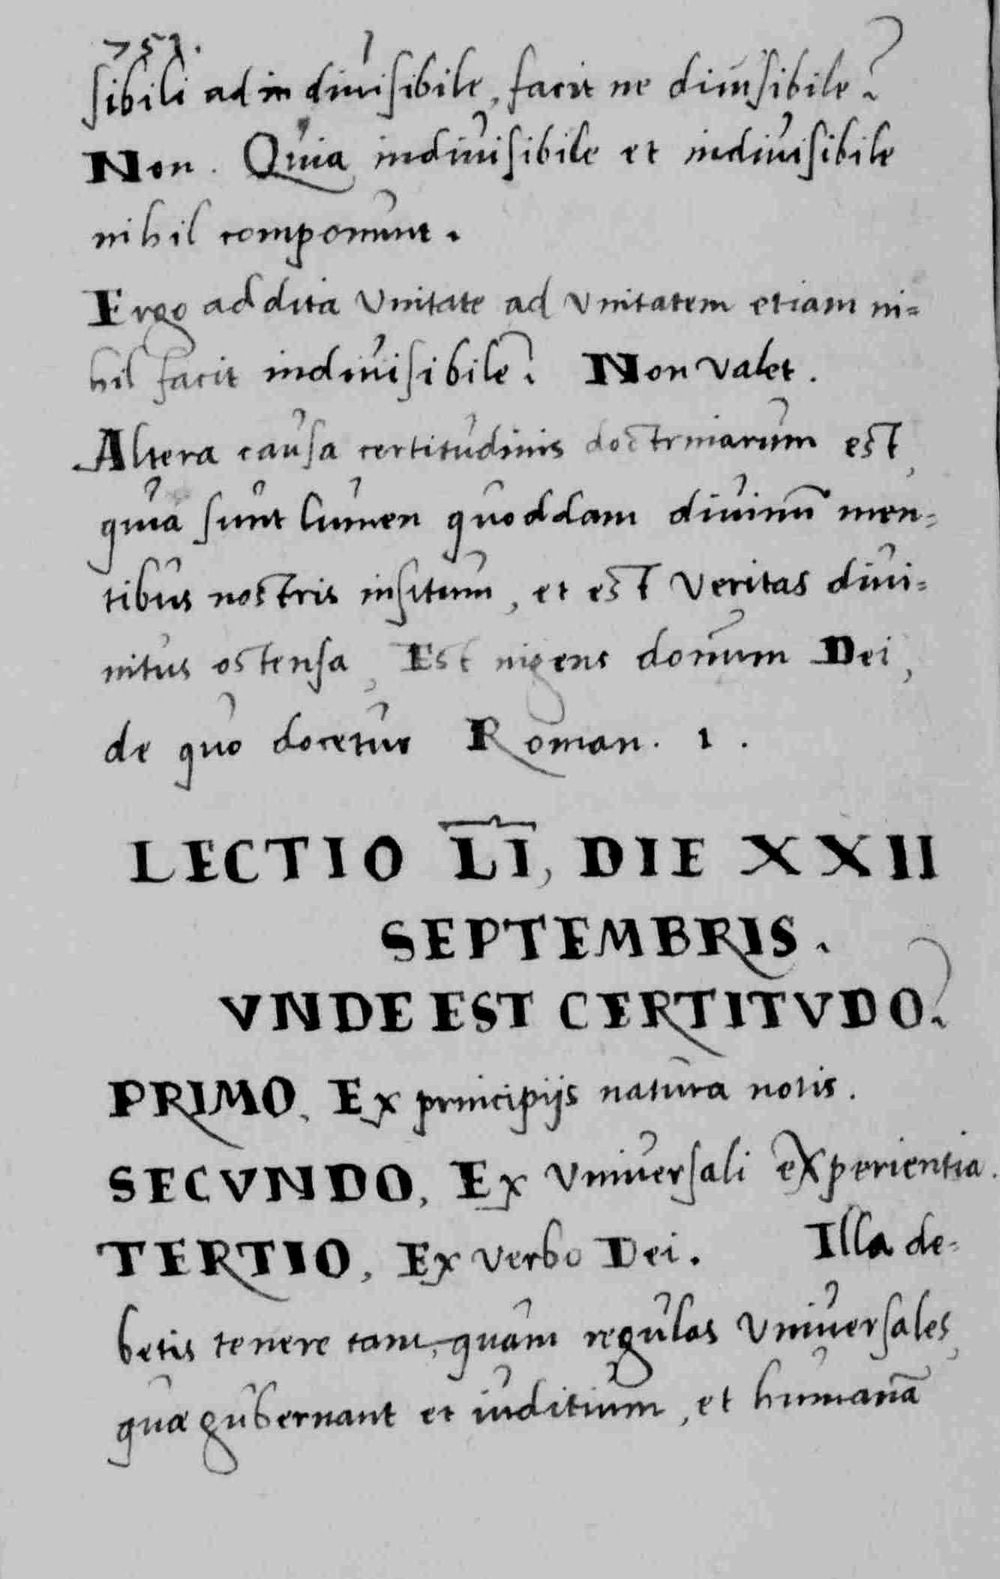 751.
sibili ad indiuisibile, facit ne diuisibile?
Non. Quia indiuisibile et indiuisibile
nihil componunt.
Ergo addita Vnitate ad Vnitatem etiam ni=
hil facit indiuisibile? Non valet.
Altera causa certitudinis doctrinarum est,
quia sunt lumen quoddam diuinū men=
tibus nostris insitum, et est Veritas diui=
nitus ostensa, Est ingens donum Dei,
de quo docetur Roman. 1.
LECTIO LI, DIE XXII
SEPTEMBRIS.
VNDE EST CERTITVDO?
PRIMO, Ex principijs natura notis.
SECVNDO, Ex Vniuersali experientia.
TERTIO, Ex verbo Dei. Illa de=
betis tenere tam, quam regulas Vniuersales,
quae gubernant et iuditium, et humanā